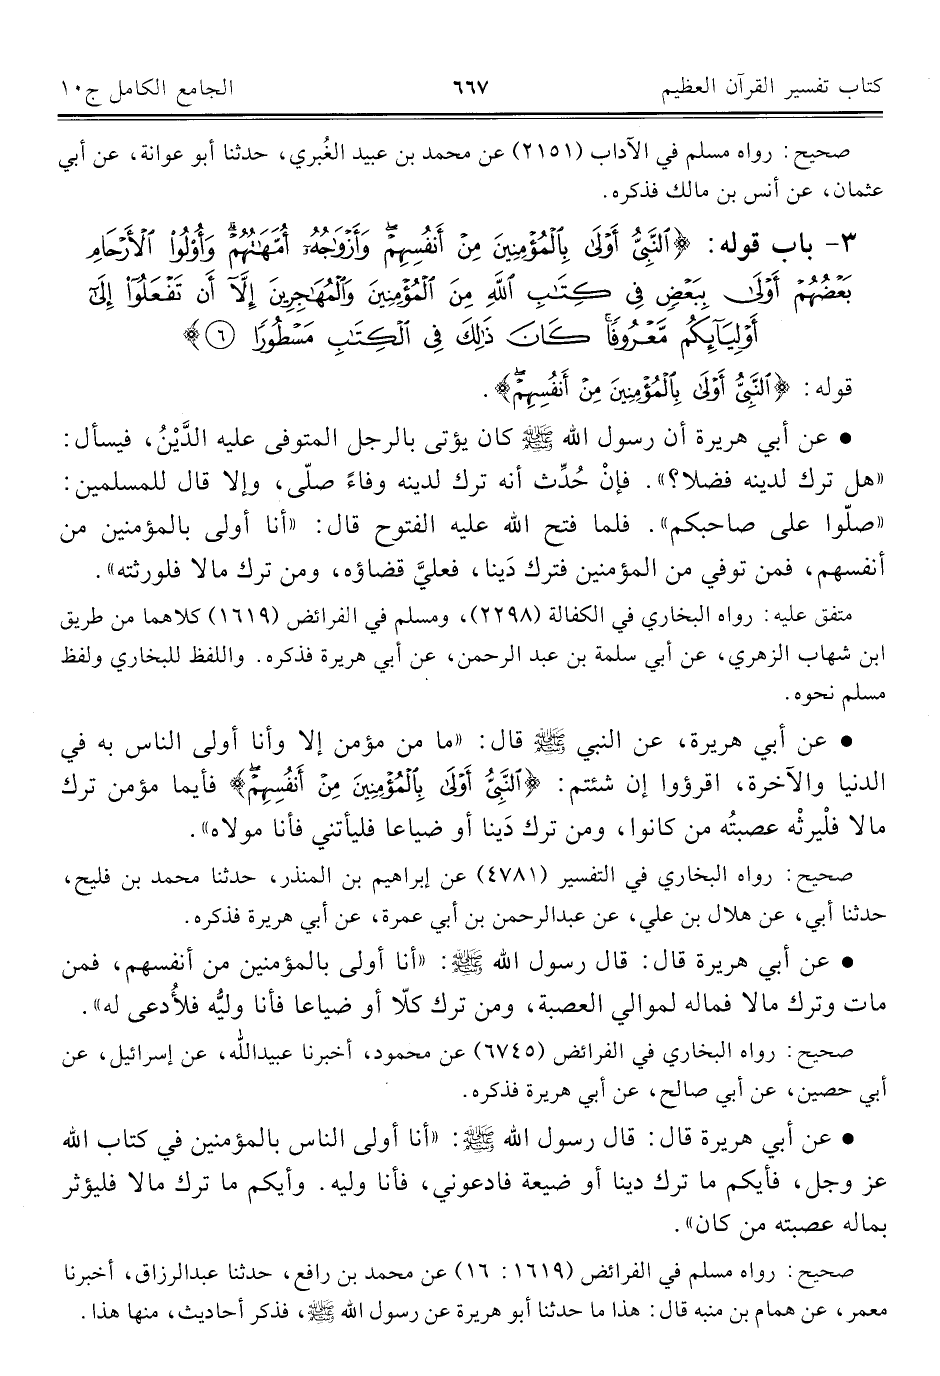 كتاب تفسير القرآن العظيم ٦٦٧ الجامع الكامل ج١٠
صحيح: رواه مسلم في الآداب (٢١٥١) عن محمد بن عبيد الغُبري، حدثنا أبو عوانة، عن أبي
عثمان، عن أنس بن مالك فذكره.
٣- باب قوله: ﴿ٱلنَّبِيُّ أَوۡلَىٰ بِٱلۡمُؤۡمِنِينَ مِنۡ أَنفُسِهِمۡۖ وَأَزۡوَٰجُهُۥٓ أُمَّهَٰتُهُمۡۗ وَأُوْلُواْ ٱلۡأَرۡحَامِ
بَعۡضُهُمۡ أَوۡلَىٰ بِبَعۡضٖ فِي كِتَٰبِ ٱللَّهِ مِنَ ٱلۡمُؤۡمِنِينَ وَٱلۡمُهَٰجِرِينَ إِلَّآ أَن تَفۡعَلُوٓاْ إِلَىٰٓ
أَوۡلِيَآئِكُم مَّعۡرُوفٗاۚ كَانَ ذَٰلِكَ فِي ٱلۡكِتَٰبِ مَسۡطُورٗا ٦﴾
قوله: ﴿ٱلنَّبِيُّ أَوۡلَىٰ بِٱلۡمُؤۡمِنِينَ مِنۡ أَنفُسِهِمۡۖ﴾.
• عن أبي هريرة أن رسول الله ﷺ كان يؤتى بالرجل المتوفى عليه الدَّيْنُ، فيسأل:
«هل ترك لدينه فضلا؟». فإنْ حُدِّث أنه ترك لدينه وفاءً صلّى، وإلا قال للمسلمين:
«صلّوا على صاحبكم». فلما فتح الله عليه الفتوح قال: «أنا أولى بالمؤمنين من
أنفسهم، فمن توفي من المؤمنين فترك دَينا، فعليَّ قضاؤه، ومن ترك مالا فلورثته».
متفق عليه: رواه البخاري في الكفالة (٢٢٩٨)، ومسلم في الفرائض (١٦١٩) كلاهما من طريق
ابن شهاب الزهري، عن أبي سلمة بن عبد الرحمن، عن أبي هريرة فذكره. واللفظ للبخاري ولفظ
مسلم نحوه.
• عن أبي هريرة، عن النبي ﷺ قال: «ما من مؤمن إلا وأنا أولى الناس به في
الدنيا والآخرة، اقرؤوا إن شئتم: ﴿ٱلنَّبِيُّ أَوۡلَىٰ بِٱلۡمُؤۡمِنِينَ مِنۡ أَنفُسِهِمۡۖ﴾ فأيما مؤمن ترك
مالا فلْيرثْه عصبتُه من كانوا، ومن ترك دَينا أو ضياعا فليأتني فأنا مولاه».
صحيح: رواه البخاري في التفسير (٤٧٨١) عن إبراهيم بن المنذر، حدثنا محمد بن فليح،
حدثنا أبي، عن هلال بن علي، عن عبدالرحمن بن أبي عمرة، عن أبي هريرة فذكره.
• عن أبي هريرة قال: قال رسول الله ﷺ: «أنا أولى بالمؤمنين من أنفسهم، فمن
مات وترك مالا فماله لموالي العصبة، ومن ترك كلّا أو ضياعا فأنا وليُّه فلأُدعى له».
صحيح: رواه البخاري في الفرائض (٦٧٤٥) عن محمود، أخبرنا عبيدالله، عن إسرائيل، عن
أبي حصين، عن أبي صالح، عن أبي هريرة فذكره.
• عن أبي هريرة قال: قال رسول الله ﷺ: «أنا أولى الناس بالمؤمنين في كتاب الله
عز وجل، فأيكم ما ترك دينا أو ضيعة فادعوني، فأنا وليه. وأيكم ما ترك مالا فليؤثر
بماله عصبته من كان».
صحيح: رواه مسلم في الفرائض (١٦١٩: ١٦) عن محمد بن رافع، حدثنا عبدالرزاق، أخبرنا
معمر، عن همام بن منبه قال: هذا ما حدثنا أبو هريرة عن رسول الله ﷺ، فذكر أحاديث، منها هذا.